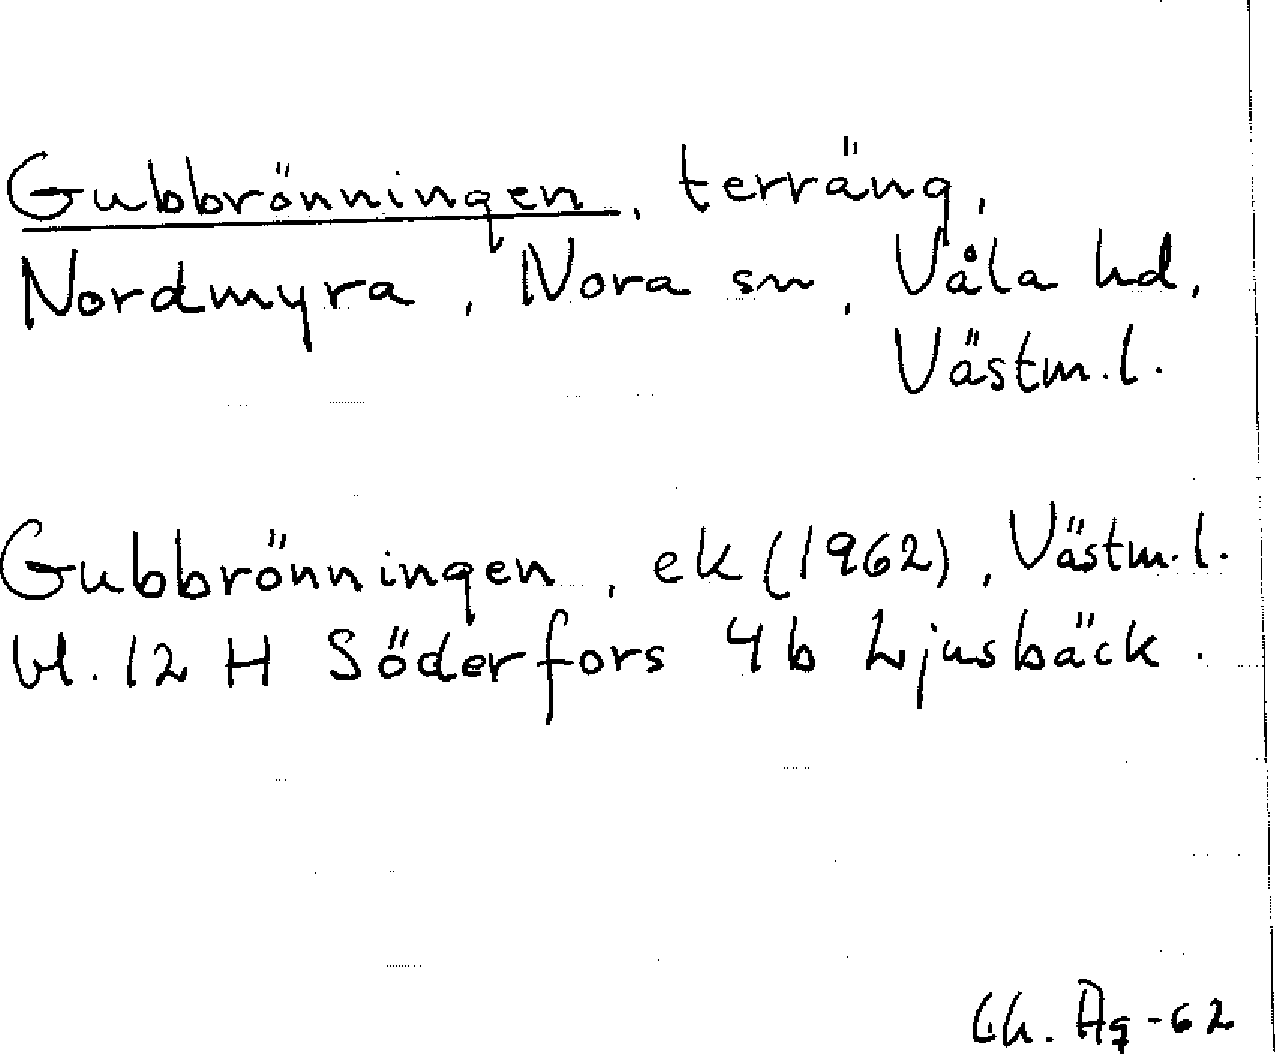 Gubbrönningen, terräng,
Nordmyra, Nora sn, Våla hd,
Västm.l.
Gubbrönningen, ek (1962), Västm.l.
bl. 12 H Söderfors 4b Ljusbäck.
Ch. Ag -62